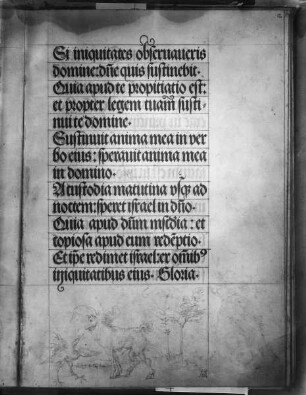 Si iniquitates obseruaueris
domine: dñe quis sustinebit.
Quia apud te propitiatio est:
et propter legem tuam susti-
nui te domine.
Sustinuit anima mea in ver
bo eius: sperauit anima mea
in domino.
A custodia matutina vsq; ad
noctem: speret israel in dño.
Quia apud dñm mīcdia: et
copiosa apud eum redēptio.
Et ip̄e redimet israel: ex om̄ib9
iniquitatibus eius. Gloria.